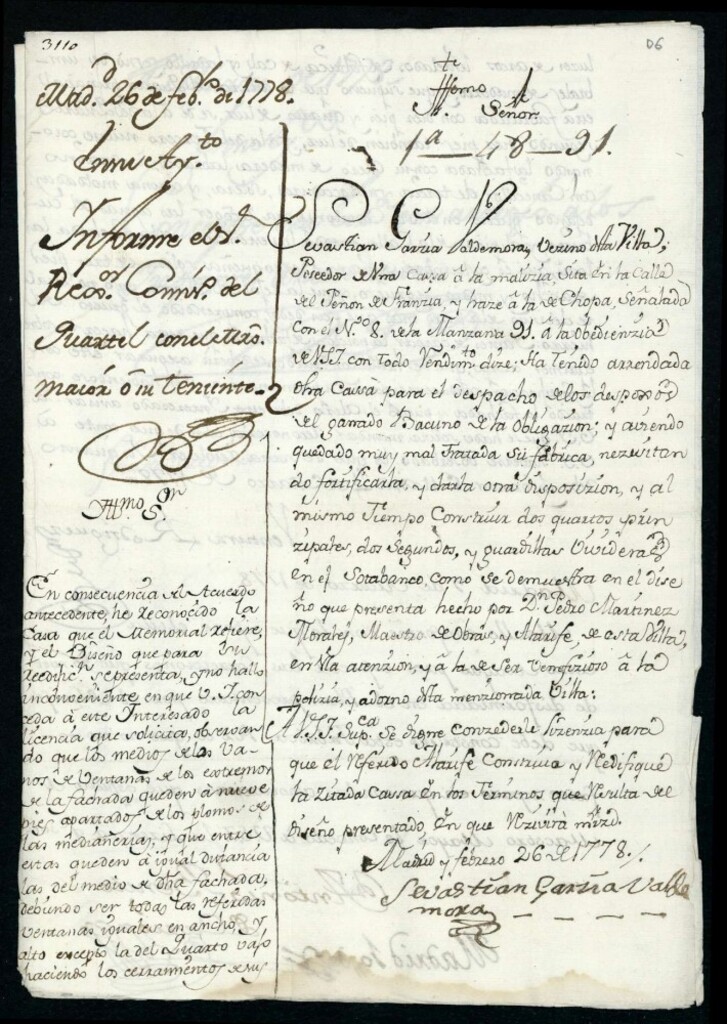 3110
06
Mad.d 26 de feb.o de 1778.
En su Ay.to
Informe el S.r
Rexo.or Comis.o del
Quartel con el Mro.
maior ô su Teniente.
Yll.mo S.or
En consecuencia del Acuerdo
antecedente, he reconocido la
Casa que el Memorial refiere,
y el Diseño que para su
Reedific.n se presenta, y no hallo
inconveniente, en que V.I. con
ceda à este Interesado la
licencia que solicita, observan
do que los medios de los va-
nos de Ventanas de los extremos
de la fachada queden à nueve
pies apartados de los plomos de
las medianerias, y que entre
estas queden à igual distancia
las del medio de dha fachada,
debiendo ser todas las referidas
ventanas iguales en ancho, y
alto excepto la del Quarto vajo
haciendo los cerramientos de sus
Yll.mo Señor
1.a — 48 — 91.
Sevastian Garzia Valdemora, Vezino desta Villa,
Poseedor de Vna Cassa â la malizia, Sita en la Calle
del Peñon de Franzia, y haze â la de Chopa, Señalada
Con el N.o 8. de la Manzana 91. â la obedienzia
de V.S.I. con todo Rendim.to dize; Ha tenido arrendada
dha Cassa para el despacho de los despoxos
del ganado Bacuno de la Obligazion; y aviendo
quedado muy mal tratada su fabrica, nezesitan
do fortificarla, y darla otra disposizion, y al
mismo Tiempo Construir dos quartos prin
zipales, dos Segundos, y guardillas Vivideras
en el Sotabanco, como se demuestra en el dise
ño que presenta hecho por D.n Pedro Martinez
Morales, Maestro de Obras, y Alarife, de esta Villa,
en Vta atenzion, y â la de Ser Venefizioso â la
polizia, y adorno desta menzionada Villa:
A V.S.I. Sup.ca Se digne conzederle Lizenzia para
que el referido Alarife Construia y Redifique
la Zitada Cassa en los Terminos que Resulta del
diseño presentado en que Rezivirà mrzd.
Madrid y febrero 26 de 1778.
Sevastian Garzia Valde
mora